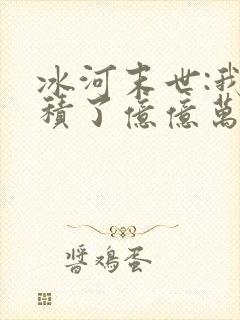 冰河末世:我
積了億億萬
醬鸡蛋